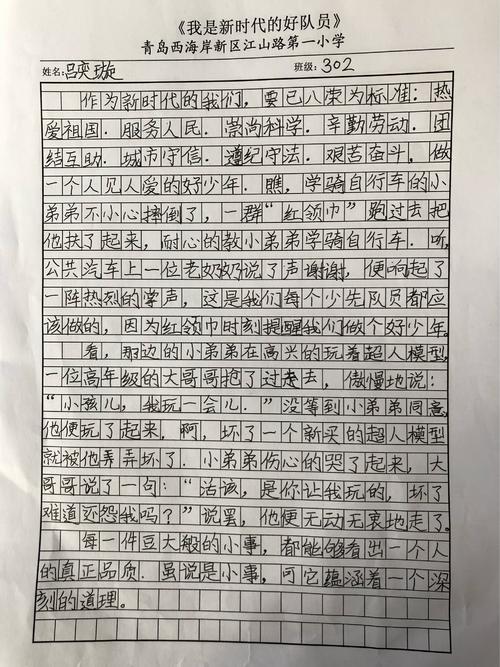 《我是新时代的好队员》
青岛西海岸新区江山路第一小学
姓名:吕奕璇 班级:302
作为新时代的我们，要已八荣为标准：热
爱祖国．服务人民．崇尚科学．辛勤劳动．团
结互助．城市守信．遵纪守法．艰苦奋斗，做
一个人见人爱的好少年．瞧，学骑自行车的小
弟弟不小心摔倒了，一群“红领巾”跑过去把
他扶了起来，耐心的教小弟弟学骑自行车．听，
公共汽车上一位老奶奶说了声谢谢，便响起了
一阵热烈的掌声，这是我们每个少先队员都应
该做的，因为红领巾时刻提醒我们做个好少年。
看，那边的小弟弟在高兴的玩着超人模型，
一位高年级的大哥哥抱了过去，傲慢地说：
“小孩儿，我玩一会儿．”没等到小弟弟同意，
他便玩了起来．啊，坏了一个新买的超人模型
就被他弄弄坏了．小弟弟伤心的哭了起来，大
哥哥说了一句：“活该，是你让我玩的，坏了
难道还怨我吗？”说罢，他便无动无衷地走了。
每一件豆大般的小事，都能够看出一个人
的真正品质．虽说是小事，可它蕴涵着一个深
刻的道理。